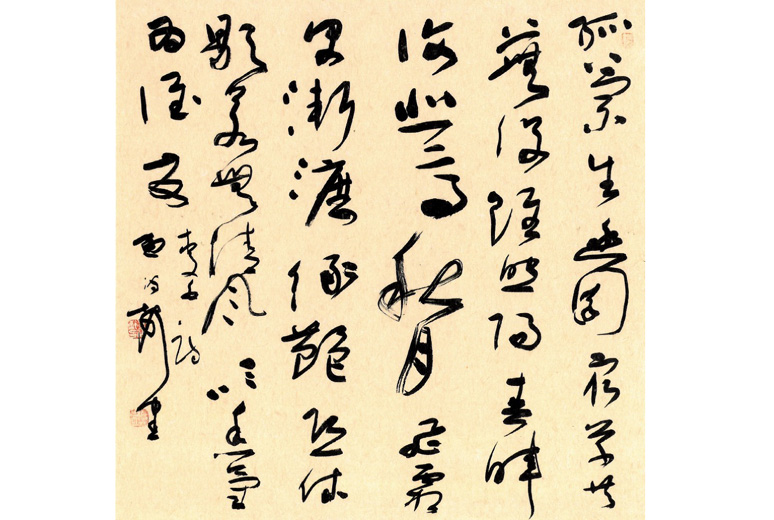 孤蘭生幽園眾草共
蕪沒雖照陽春暉
復悲高秋月飛霜
早淅瀝綠艷恐休
歇若無清風吹香氣
為誰發
李白詩
書